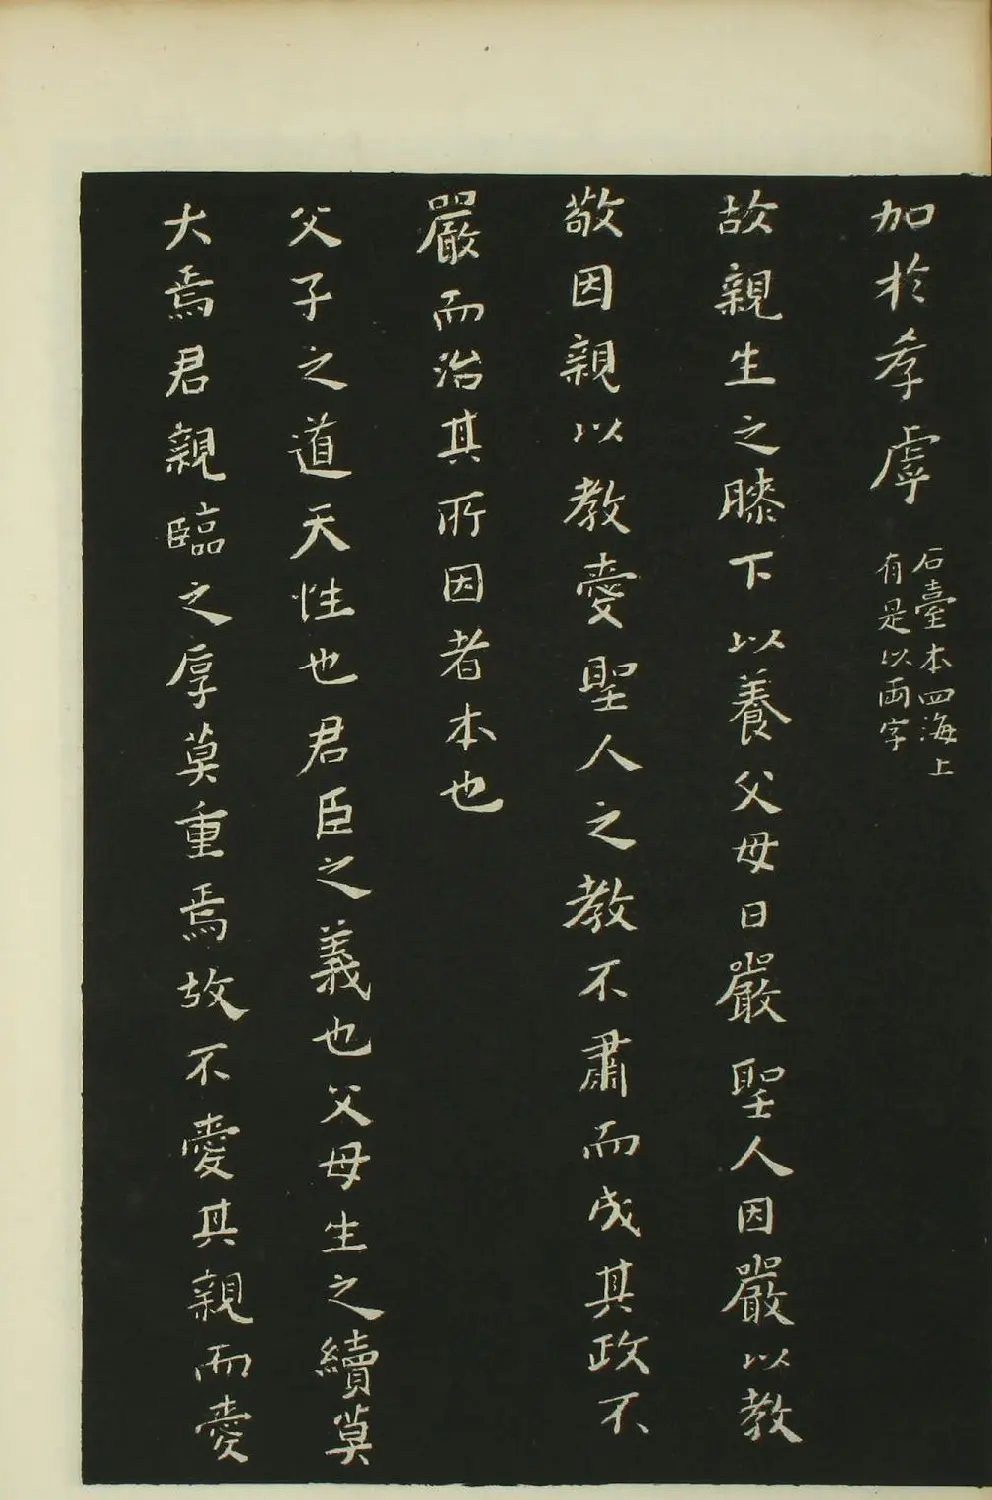 加於孝虖
石臺本四海上
有是以兩字
故親生之膝下以養父母日嚴聖人因嚴以教
敬因親以教愛聖人之教不肅而成其政不
嚴而治其所因者本也
父子之道天性也君臣之義也父母生之續莫
大焉君親臨之厚莫重焉故不愛其親而愛